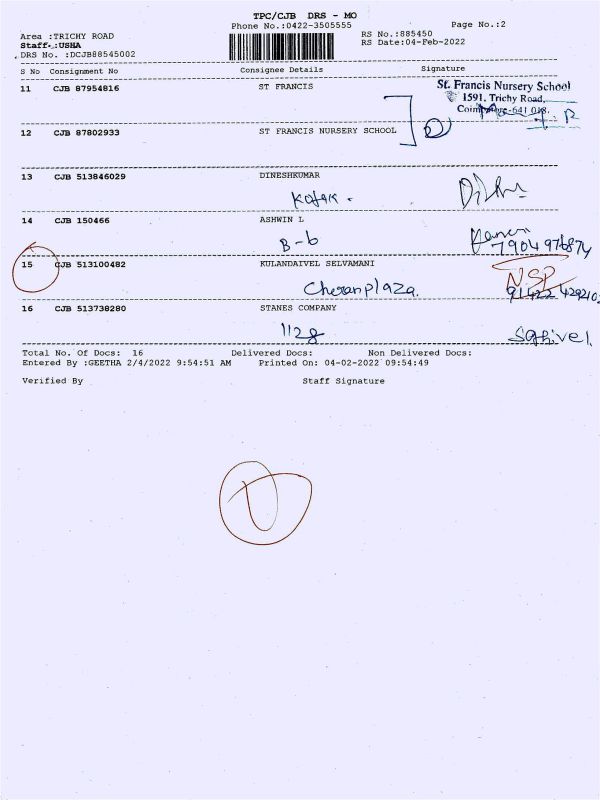 TPC/CJB DRS - MO
Phone No.:0422-3505555
Page No.:2
Area :TRICHY ROAD
RS No.:885450
Staff-:USHA
RS Date:04-Feb-2022
DRS No. :DCJB88545002
S No Consignment No Consignee Details Signature
11 CJB 87954816 ST FRANCIS
St. Francis Nursery School
1591, Trichy Road,
Coimbatore-641 018.
12 CJB 87802933 ST FRANCIS NURSERY SCHOOL
13 CJB 513846029 DINESHKUMAR
Kotak.
14 CJB 150466 ASHWIN L
B-6
7904976874
15 CJB 513100482 KULANDAIVEL SELVAMANI
NSP
Cheranplaza.
16 CJB 513738280 STANES COMPANY
Sathivel.
Total No. Of Docs: 16 Delivered Docs: Non Delivered Docs:
Entered By :GEETHA 2/4/2022 9:54:51 AM Printed On: 04-02-2022 09:54:49
Verified By Staff Signature